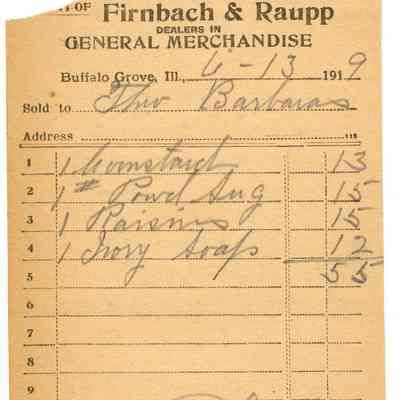 OF Firnbach & Raupp
DEALERS IN
GENERAL MERCHANDISE
Buffalo Grove, Ill., 6-13 1919
Sold to Theo Barbaras
Address 115
1 1 Cornstarch 13
2 1# Powd Sug 15
3 1 Raisins 15
4 1 Ivory Soap 12
5 55
6
7
8
9